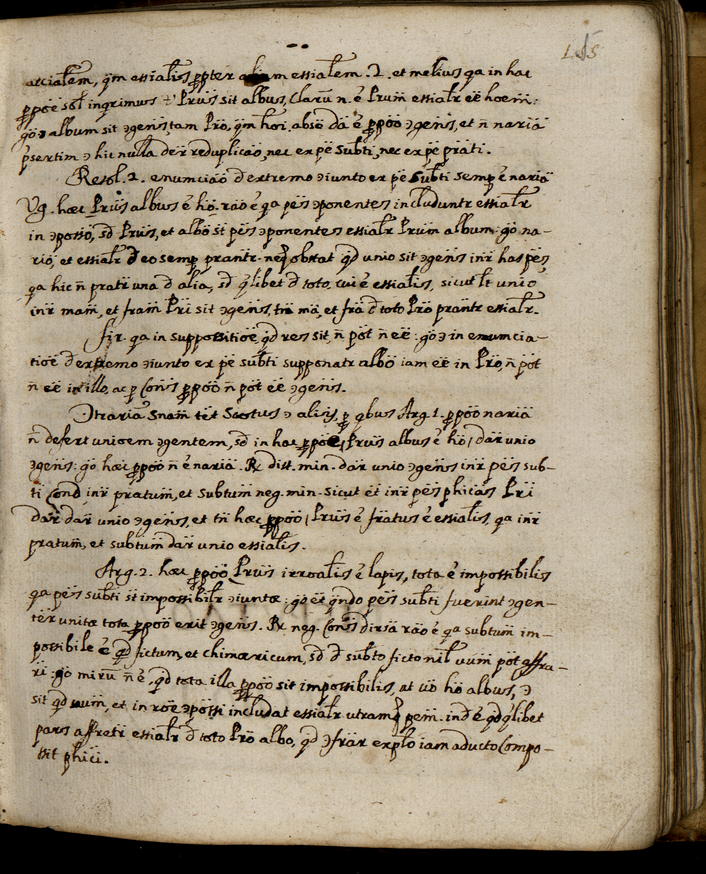 155
accialem, qm essialis ppter aliam essialem. 2. et melius qa in hac
ppoe sol inqrimus ŧ Prus sit albus, Clarũ n. ẽ Prum essialr eẽ hoem:
go ɔ album sit ɔgens, tam Pro, qm hoi, absẽ dã ẽ ppoo ɔgens, et ñ naria
psertim ɔ hic nulla der reduplicao, nec ex pe subti, nec ex pe prati.
Resol. 2. enunciao d extremo ɔiunto ex pe subti semp ẽ naria
Vg. haec Prus albus ẽ ho. rao ẽ qa pes ɔponentes includuntr essialr
in ɔposso, sd Prus, et albo st pes ɔponentes essialr Prum album: go na-
rio, et essialr d eo semp prantr. neq obstat qd unio sit ɔgens inr has pes
qa hic ñ pratr una d alia, sd qlibet d toto, cui ẽ essialis, sicut lt unio
inr mam, et fram Pri sit ɔgens, tñ ma, et fra d toto Pro prantr essialr.
fir. qa in suppositioe qd res sit, ñ pot ñ eẽ: go ɔ in enuncia-
tioe d extremo ɔiunto ex pe subti supponatr albo iam eẽ in Pro, ñ pot
ñ eẽ in illo, ac p Cons ppoo ñ pot eẽ ɔgens.
Ɔtraria Snam tet Scotus ɔ alijs, p qbus Arg. 1. ppoo naria
ñ defert unioem ɔgentem, sd in hac ppoe, Prus albus ẽ ho, dar unio
ɔgens: go haec ppoo ñ ẽ naria. R dist. min. dar unio ɔgens inr pes sub-
ti Cond inr pratum, et subtum neg. min. sicut et inr pes phicas Pri
dar dar unio ɔgens, et tñ haec ppoo, Prus ẽ fratus ẽ essialis, qa inr
pratum, et subtum dar unio essialis.
Arg. 2. haec ppoo Prus irroalis ẽ lapis, tota ẽ impossibilis
qa pes subti st impossibilr ɔiuntae: go et qndo pes subti fuerint ɔgen-
ter unitae tota ppoo erit ɔgens. R neg. Cons dirsa rao ẽ qa subtum im-
possibile ẽ qd fictum, et chimaericum, sd d subto ficto nil uum pot affra-
ri: go mirũ ñ ẽ, qd tota illa ppoo sit impossibilis, at uo ho albus, ɔ
sit qd uum, et in roe ɔpossi includat essialr utramq pem. ind ẽ qd qlibet
pars affretr essialr d toto Pro albo, qd ɔfrar explo iam aducto Compo-
sit phici.